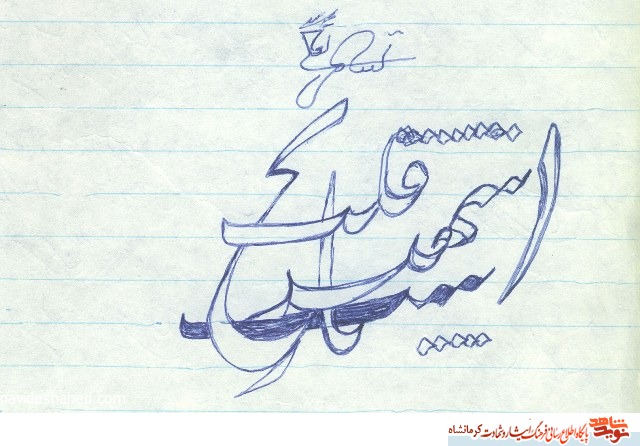 بسمه تعالی
شهید قلب تاریخ است
navideshahed.com
نوید شاهد پایگاه اطلاع رسانی فرهنگ ایثار و شهادت کرمانشاه